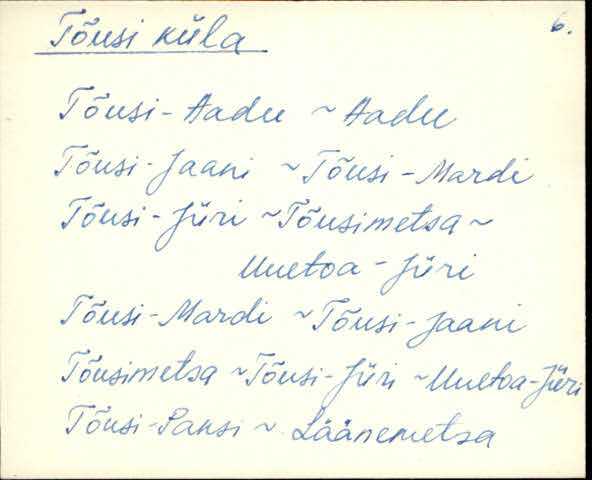 6.
Tõusi küla
Tõusi-Aadu ~ Aadu
Tõusi-Jaani ~ Tõusi-Mardi
Tõusi-Jüri ~ Tõusimetsa ~
Uuetoa-Jüri
Tõusi-Mardi ~ Tõusi-Jaani
Tõusimetsa ~ Tõusi-Jüri ~ Uuetoa-Jüri
Tõusi-Sansi ~ Läänemetsa